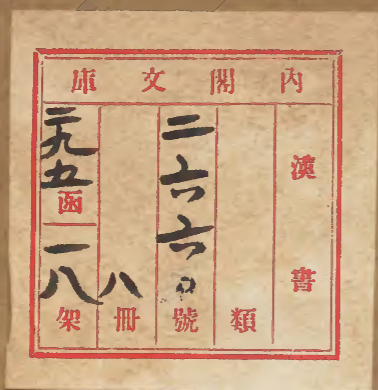 内閣文庫
漢書
類
二六六〇號
八冊
二九五函
一八架